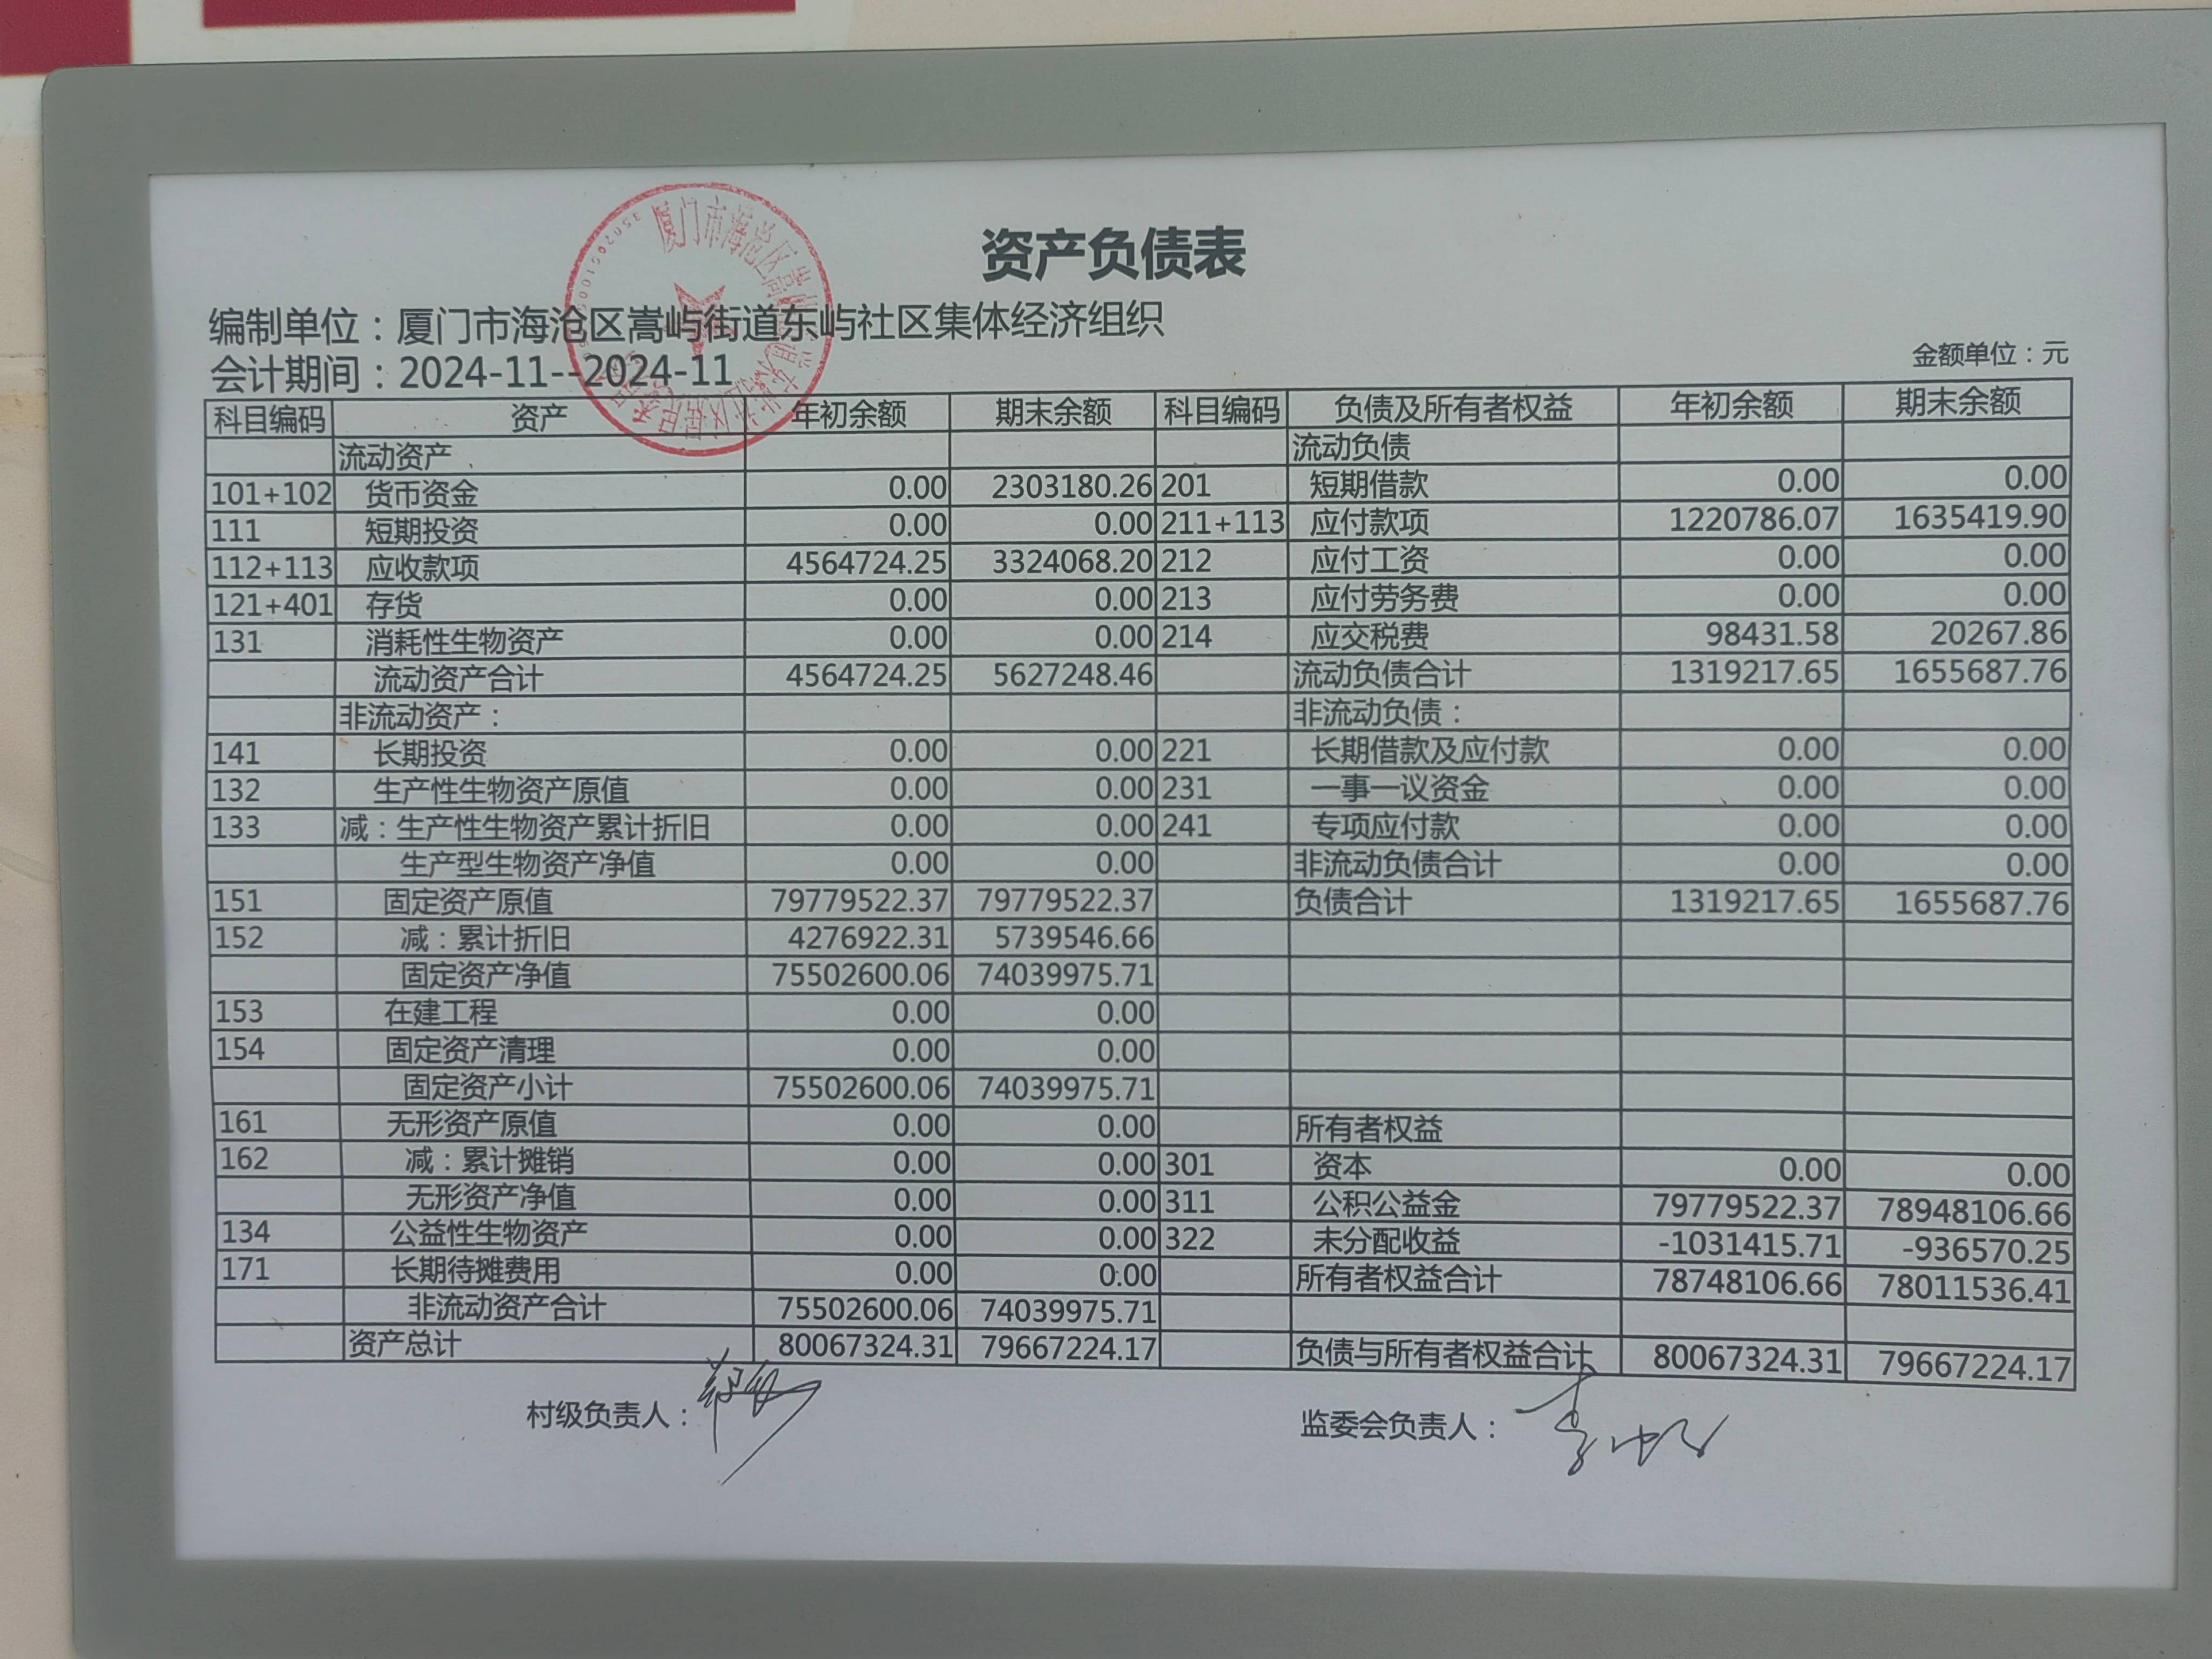 资产负债表
编制单位：厦门市海沧区嵩屿街道东屿社区集体经济组织
会计期间：2024-11--2024-11
金额单位：元
科目编码 资产 年初余额 期末余额 科目编码 负债及所有者权益 年初余额 期末余额
流动资产 流动负债
101+102 货币资金 0.00 2303180.26 201 短期借款 0.00 0.00
111 短期投资 0.00 0.00 211+113 应付款项 1220786.07 1635419.90
112+113 应收款项 4564724.25 3324068.20 212 应付工资 0.00 0.00
121+401 存货 0.00 0.00 213 应付劳务费 0.00 0.00
131 消耗性生物资产 0.00 0.00 214 应交税费 98431.58 20267.86
流动资产合计 4564724.25 5627248.46 流动负债合计 1319217.65 1655687.76
非流动资产： 非流动负债：
141 长期投资 0.00 0.00 221 长期借款及应付款 0.00 0.00
132 生产性生物资产原值 0.00 0.00 231 一事一议资金 0.00 0.00
133 减：生产性生物资产累计折旧 0.00 0.00 241 专项应付款 0.00 0.00
生产型生物资产净值 0.00 0.00 非流动负债合计 0.00 0.00
151 固定资产原值 79779522.37 79779522.37 负债合计 1319217.65 1655687.76
152 减：累计折旧 4276922.31 5739546.66
固定资产净值 75502600.06 74039975.71
153 在建工程 0.00 0.00
154 固定资产清理 0.00 0.00
固定资产小计 75502600.06 74039975.71
161 无形资产原值 0.00 0.00 所有者权益
162 减：累计摊销 0.00 0.00 301 资本 0.00 0.00
无形资产净值 0.00 0.00 311 公积公益金 79779522.37 78948106.66
134 公益性生物资产 0.00 0.00 322 未分配收益 -1031415.71 -936570.25
171 长期待摊费用 0.00 0.00 所有者权益合计 78748106.66 78011536.41
非流动资产合计 75502600.06 74039975.71
资产总计 80067324.31 79667224.17 负债与所有者权益合计 80067324.31 79667224.17
村级负责人： 监委会负责人：